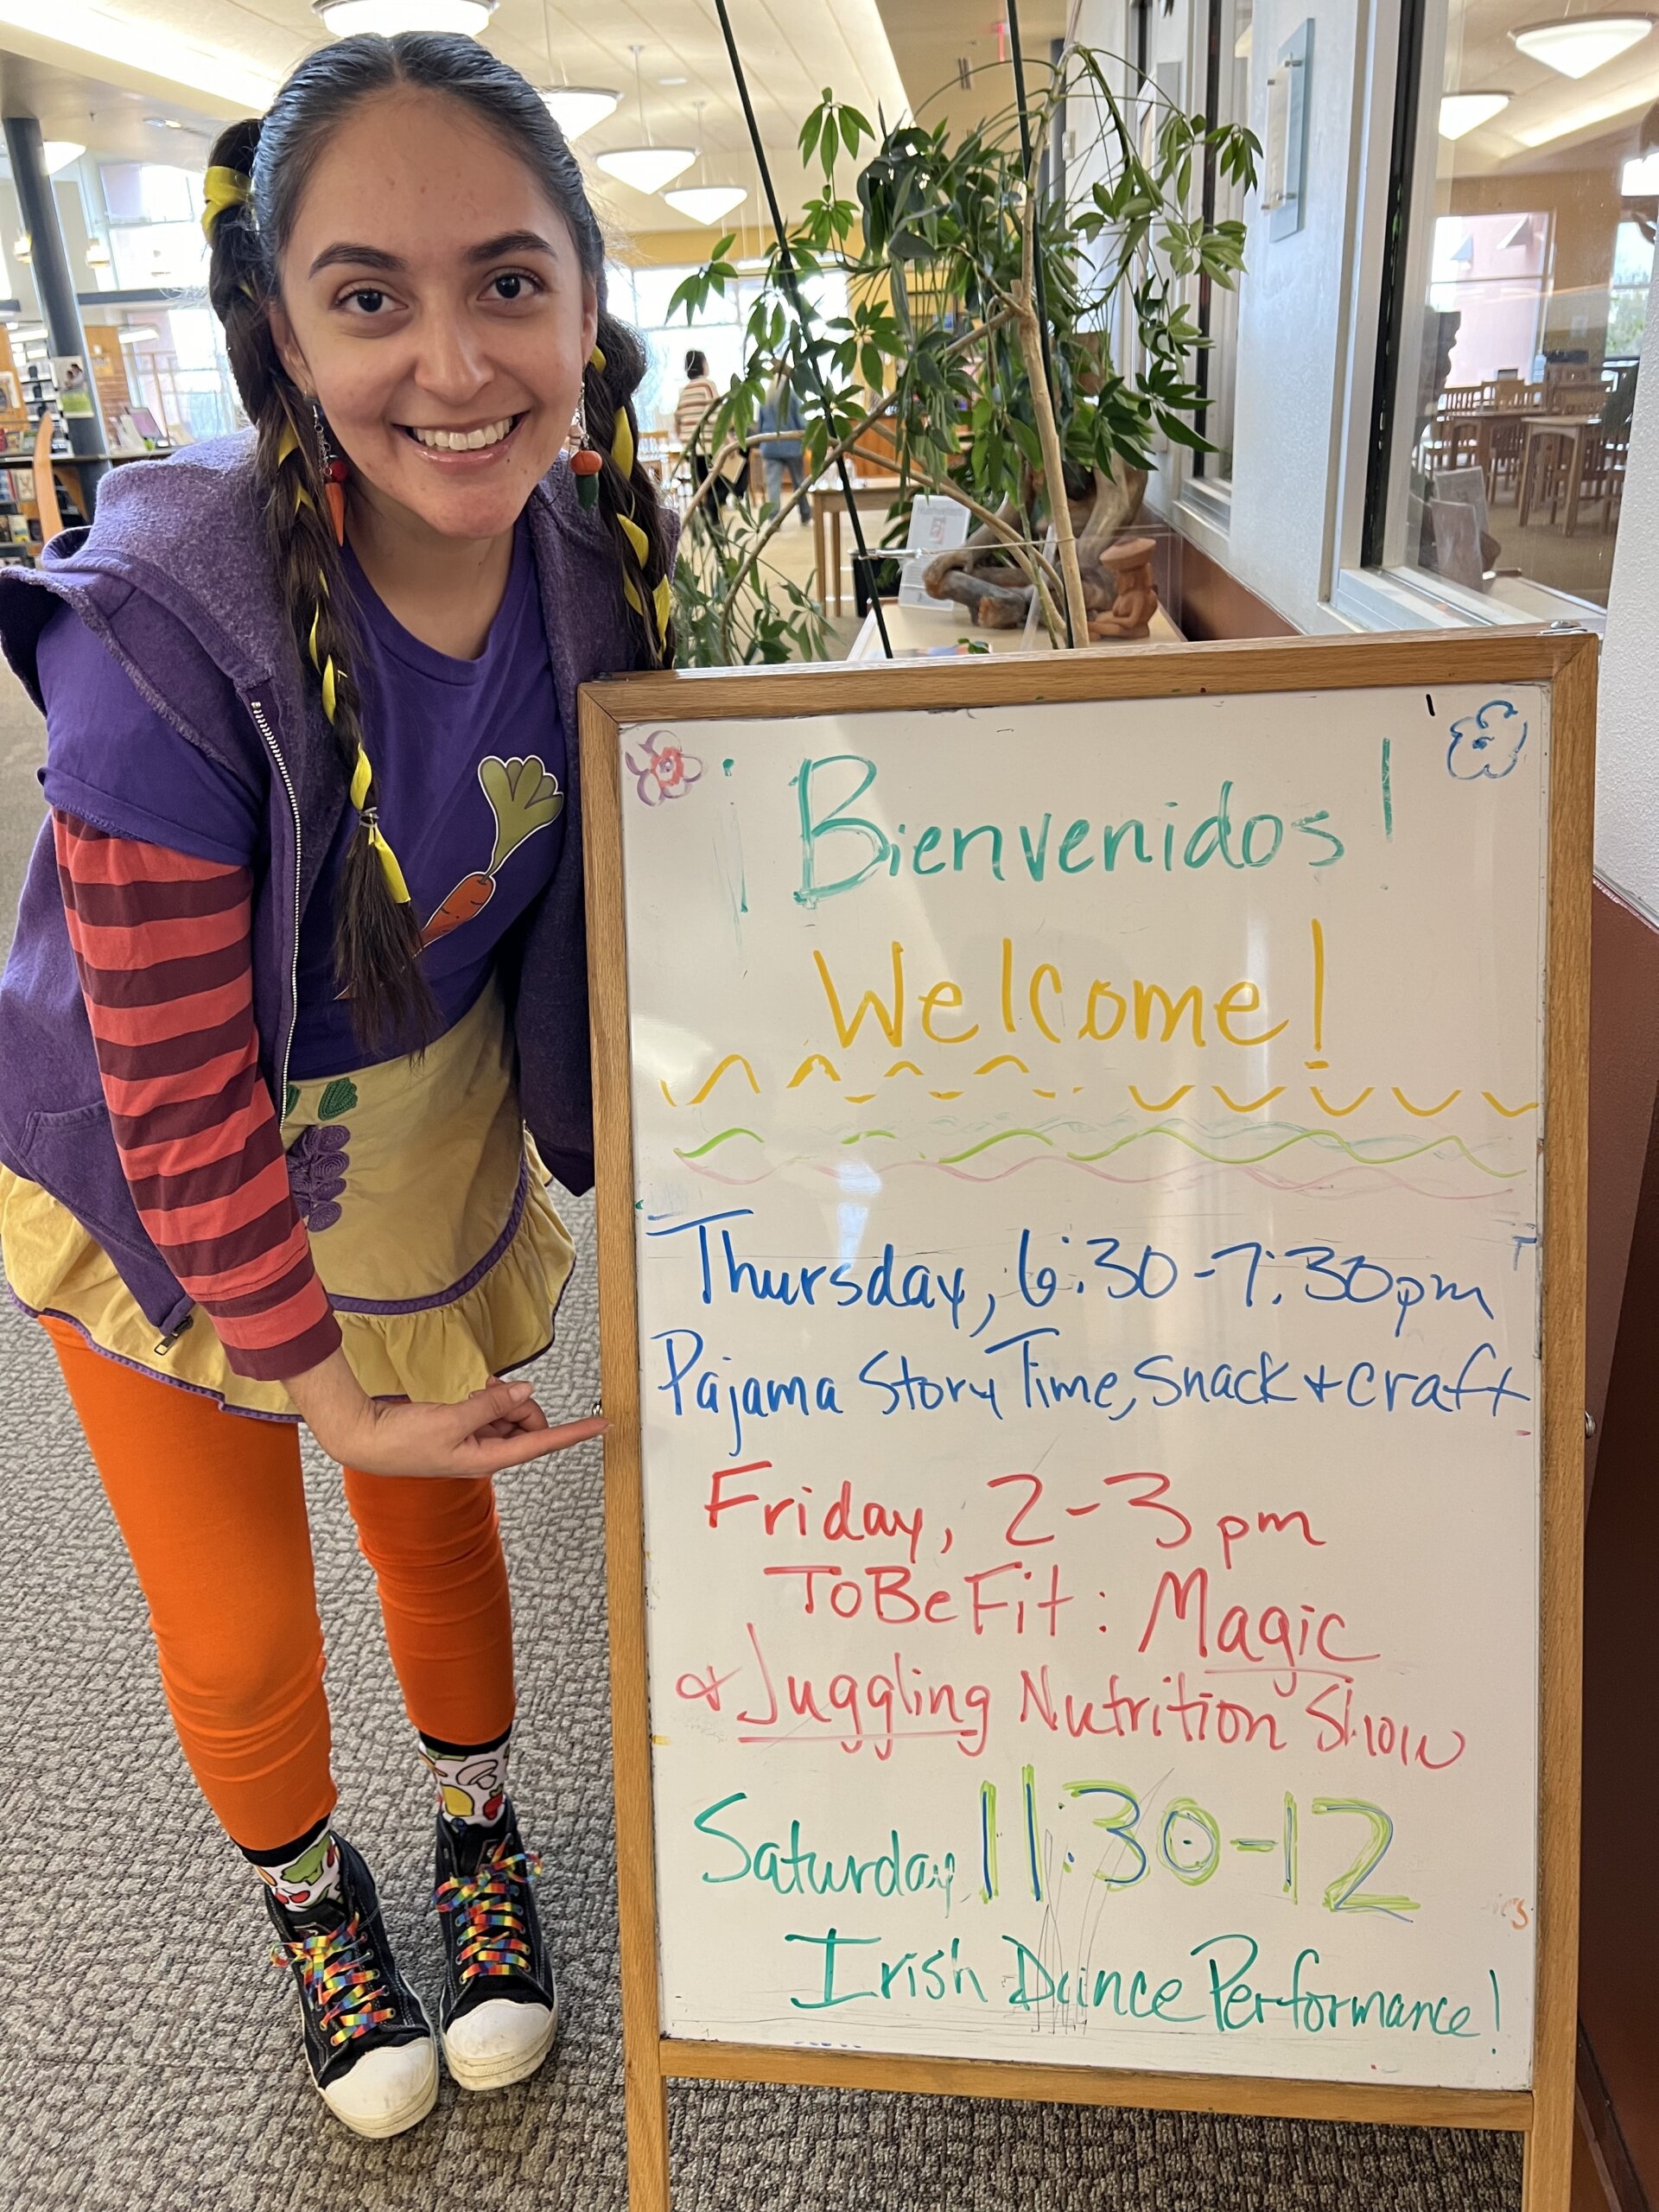 ¡Bienvenidos!
Welcome!
Thursday, 6:30-7:30pm
Pajama Story Time, Snack + Craft
Friday, 2-3pm
ToBeFit: Magic
& Juggling Nutrition Show
Saturday, 11:30-12
Irish Dance Performance!